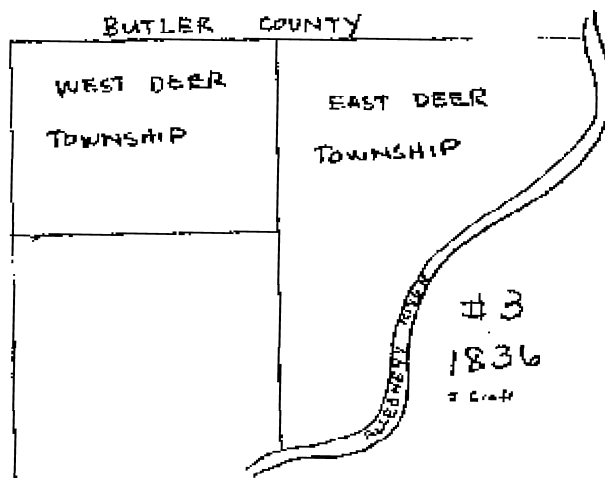 BUTLER COUNTY
WEST DEER
TOWNSHIP
EAST DEER
TOWNSHIP
ALLEGHENY RIVER
#3
1836
J Craft